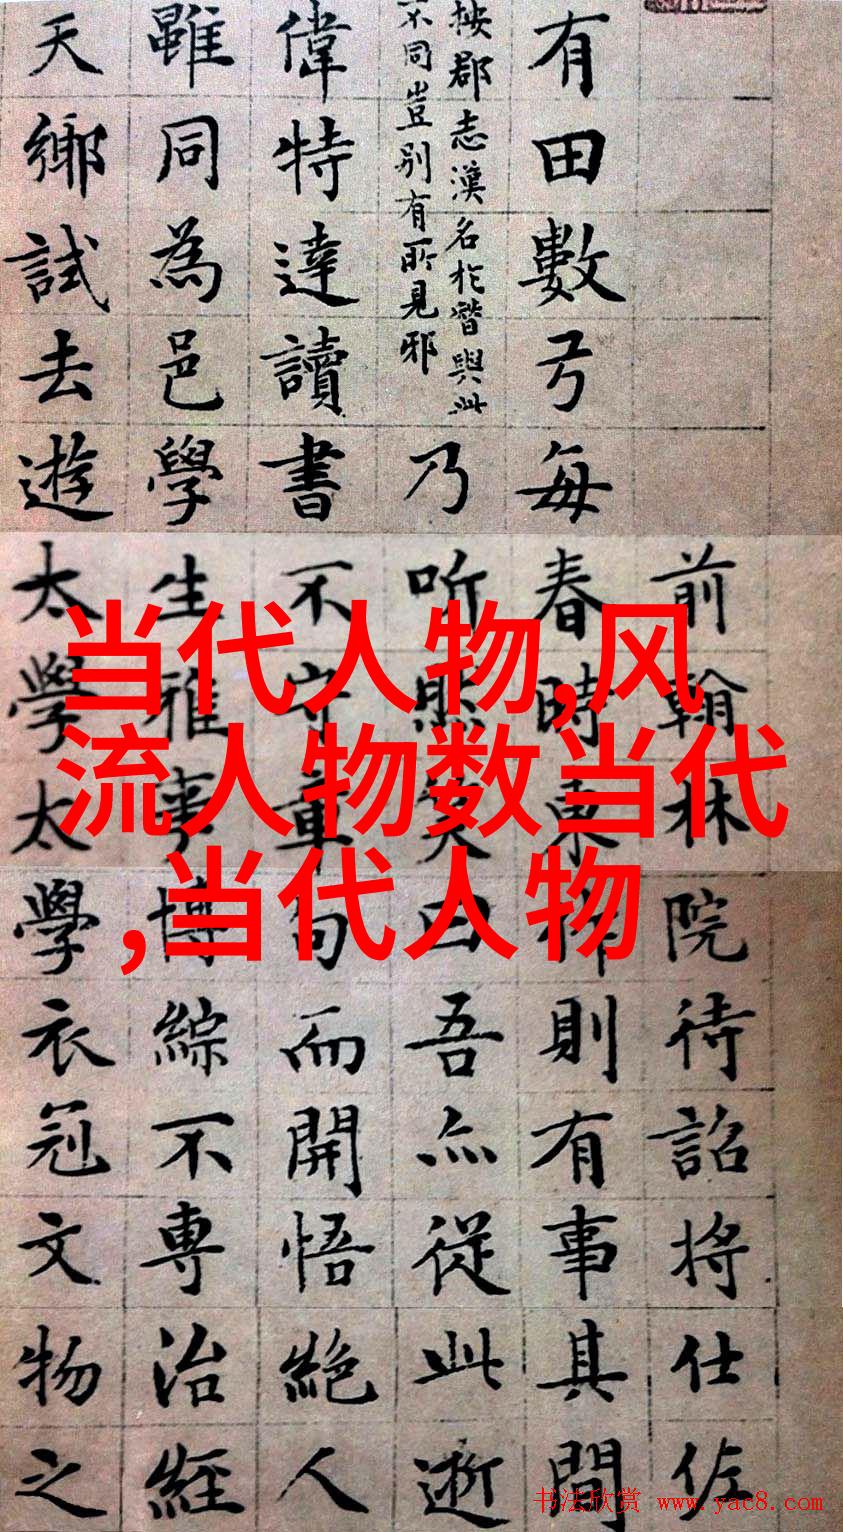 前翰林院待詔將仕佐
有田數弓每春時東作則有事其間
按郡志漢名於潛與此
不同豈别有所見邪
乃听然笑曰吾亦從此逝
偉特達讀書不守章句而開悟絕人
雖同為邑學生雅事博綜不專治經
天鄉試去遊太學太學衣冠文物之
当代人物,风
流人物数当代
,当代人物
书法欣赏 www.yac8.com